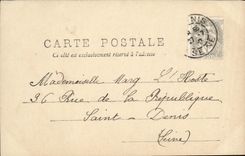 CARTE POSTALE
Ce côté est exclusivement réservé à l'adresse
Mademoiselle Marg L'Hoste
36 Rue de la République
Saint-Denis
(Seine)